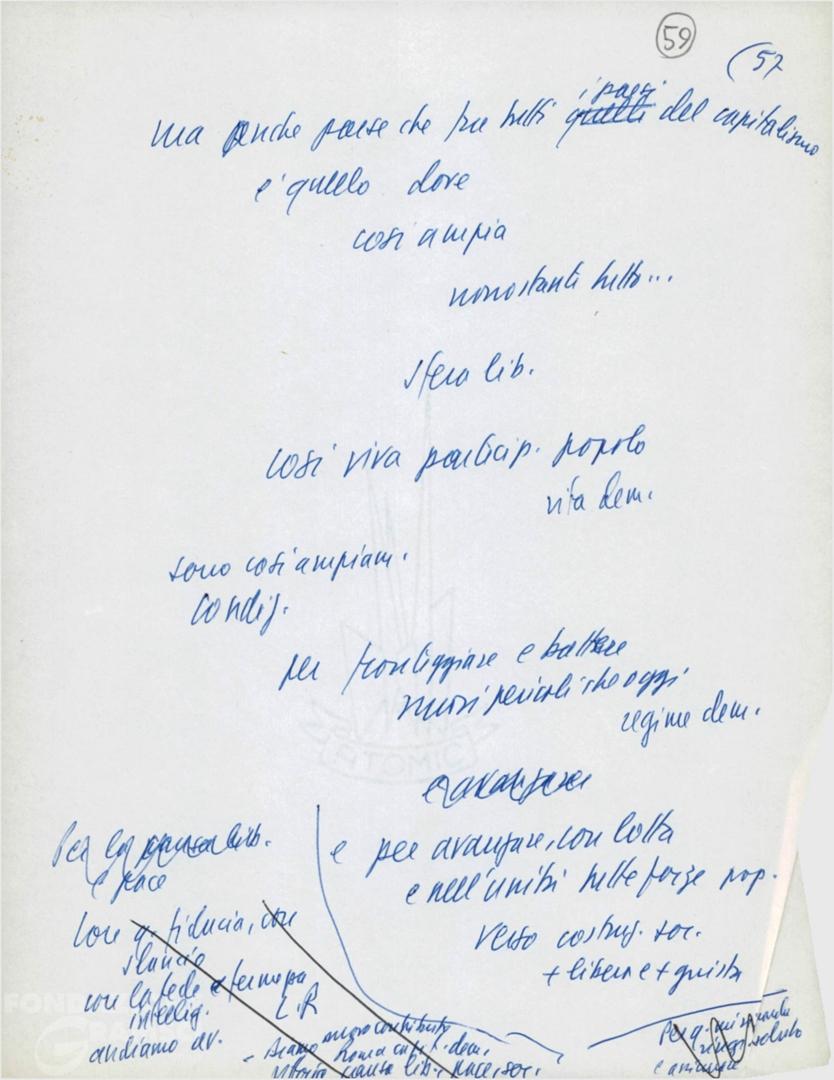 59
(57
ma anche paese che fra tutti i paesi quelli del capitalismo
e' quello dove
così ampia
nonostante tutto...
sfera lib.
così viva particip. popolo
vita dem.
sono così ampiam.
condiz.
per fronteggiare e battere
nuovi pericoli che oggi
regime dem.
e avanzare
e per avanzare, con lotta
e nell'unità tutte forze pop.
verso costruz. soc.
+ libera e + giusta
Per la causa lib.
e pace
con q. fiducia, con
slancio
con la fede e fermezza
intellig.
andiamo av.
L.R
- Diamo nuovo contributo
Roma dem.
Vittoria causa lib. pace, soc.
Per q.
saluto
e
ATOMIC
FOND
GRA